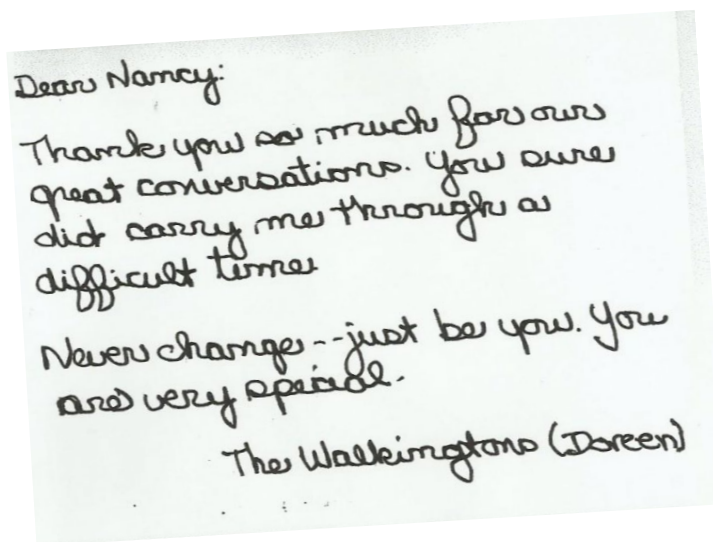 Dear Nancy:
Thank you so much for our
great conversations. You sure
did carry me through a
difficult time
Never change--just be you. You
are very special.
The Walkingtons (Doreen)